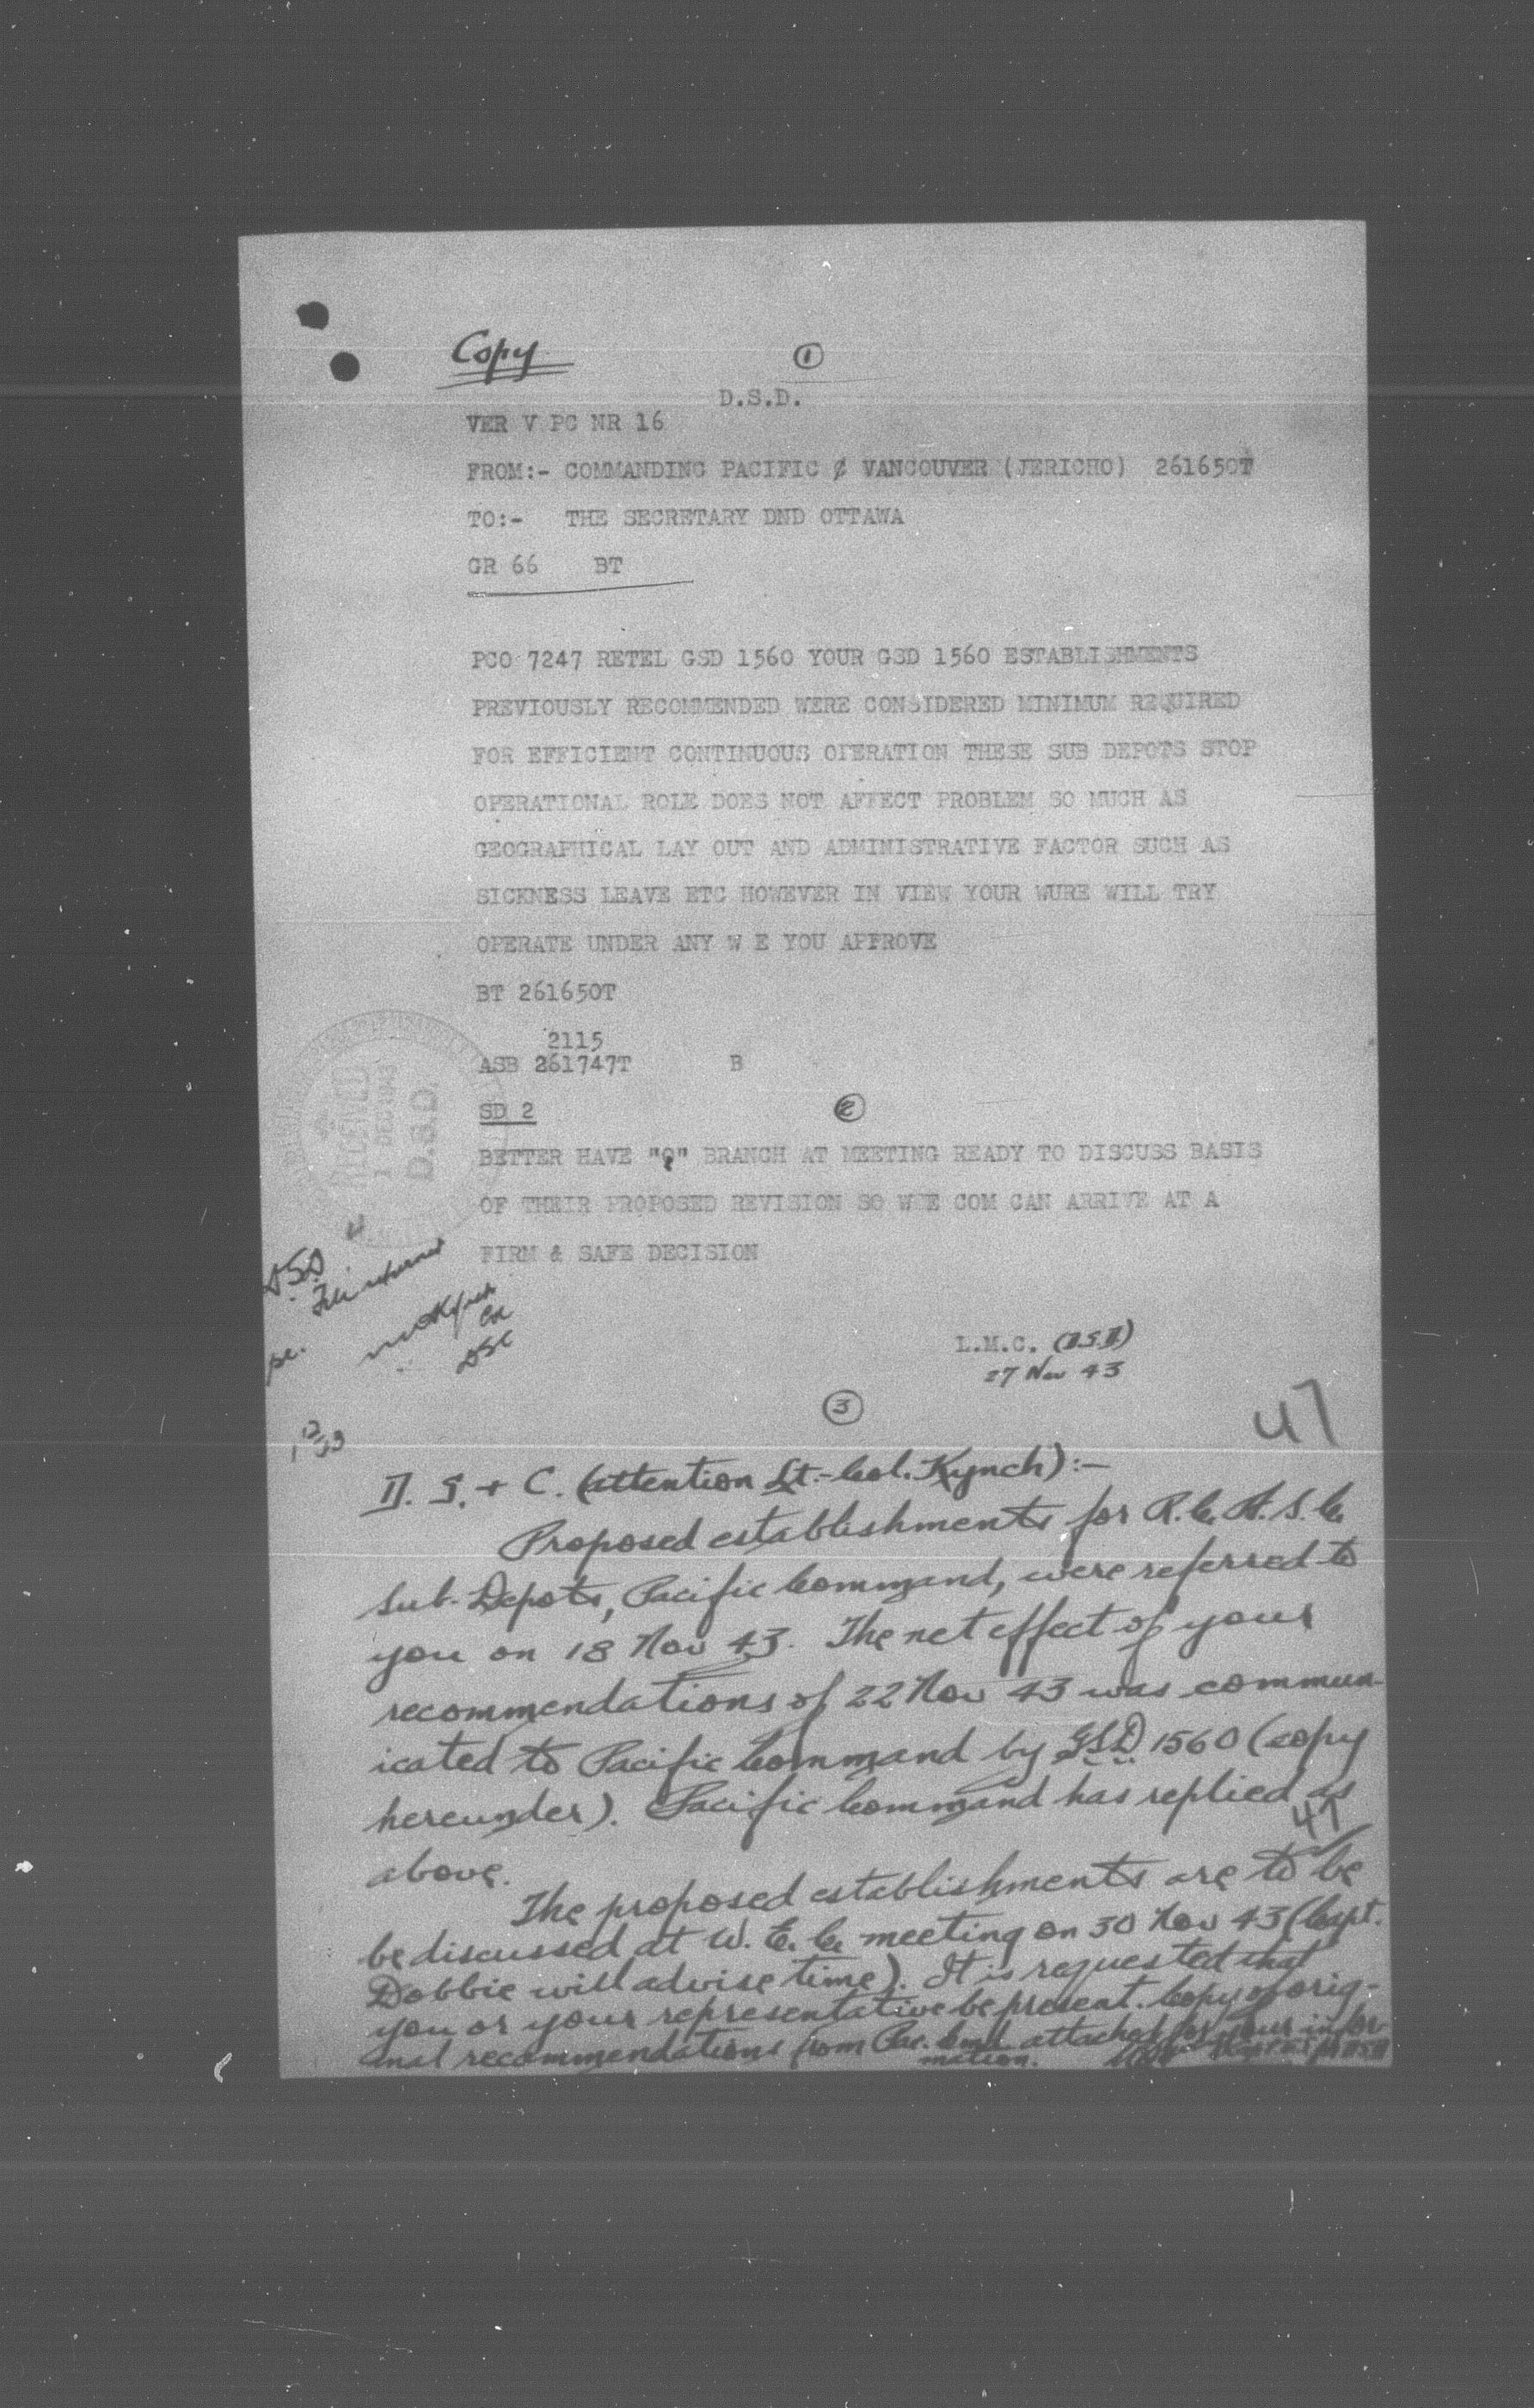 Copy
①
D.S.D.
VER V PC NR 16
FROM:- COMMANDING PACIFIC & VANCOUVER (JERICHO) 261650T
TO:- THE SECRETARY DND OTTAWA
GR 66 BT
PCO 7247 RETEL GSD 1560 YOUR GSD 1560 ESTABLISHMENTS
PREVIOUSLY RECOMMENDED WERE CONSIDERED MINIMUM REQUIRED
FOR EFFICIENT CONTINUOUS OPERATION THESE SUB DEPOTS STOP
OPERATIONAL ROLE DOES NOT AFFECT PROBLEM SO MUCH AS
GEOGRAPHICAL LAY OUT AND ADMINISTRATIVE FACTOR SUCH AS
SICKNESS LEAVE ETC HOWEVER IN VIEW YOUR WURE WILL TRY
OPERATE UNDER ANY W E YOU APPROVE
BT 261650T
2115
ASB 261747T B
SD 2
②
BETTER HAVE "Q" BRANCH AT MEETING READY TO DISCUSS BASIS
OF THEIR PROPOSED REVISION SO W E COM CAN ARRIVE AT A
FIRM & SAFE DECISION
RECEIVED
1 DEC 1943
D.S.D.
DSD
File returned
L.M.C. (D.S.D.)
27 Nov 43
③
47
D. S. + C. (attention Lt.-Col. Kynch):-
Proposed establishments for R.C.A.S.C.
Sub-Depots, Pacific Command, were referred to
you on 18 Nov 43. The net effect of your
recommendations of 22 Nov 43 was commun-
icated to Pacific Command by GSD 1560 (copy
hereunder). Pacific Command has replied as
47
above.
The proposed establishments are to be
be discussed at W.E.C. meeting on 30 Nov 43 (Capt.
Dobbie will advise time). It is requested that
you or your representative be present. Copy of orig-
inal recommendations from Pac. Comd. attached for your infor-
mation.